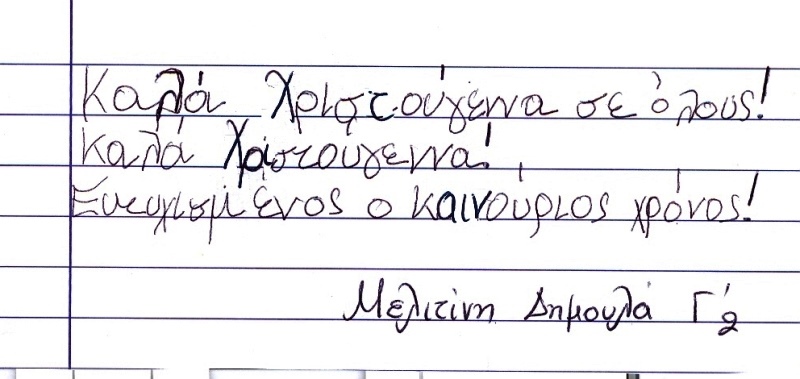 Καλά Χριστούγεννα σε όλους!
Καλά Χριστουγεννα!
Ευτυχισμένος ο καινούριος χρόνος!
Μελιτίνη Δημουλά Γ΄2